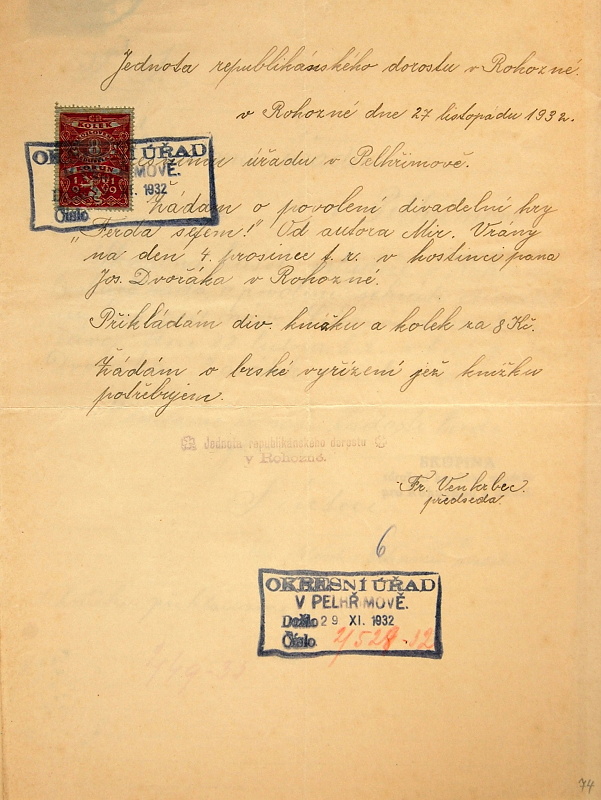 Jednota republikánského dorostu v Rohozné.
v Rohozné dne 27 listopadu 1932.
ČR
KOLEK
OKRESNÍ ÚŘAD
V PELHŘIMOVĚ.
XI. 1932
Číslo
úřadu v Pelhřimově.
Žádám o povolení divadelní hry
„Ferda sejem!" Od autora Mir. Vrány
na den 4. prosince t. r. v hostinci pana
Jos. Dvořáka v Rohozné.
Přikládám div. knížku a kolek za 8 Kč.
Žádám o brské vyřízení jež knížku
potřebujem.
Jednota republikánského dorostu
v Rohozné.
Fr. Venkrbec.
předseda.
6
OKRESNÍ ÚŘAD
V PELHŘIMOVĚ.
Došlo 29 XI. 1932
Číslo
74